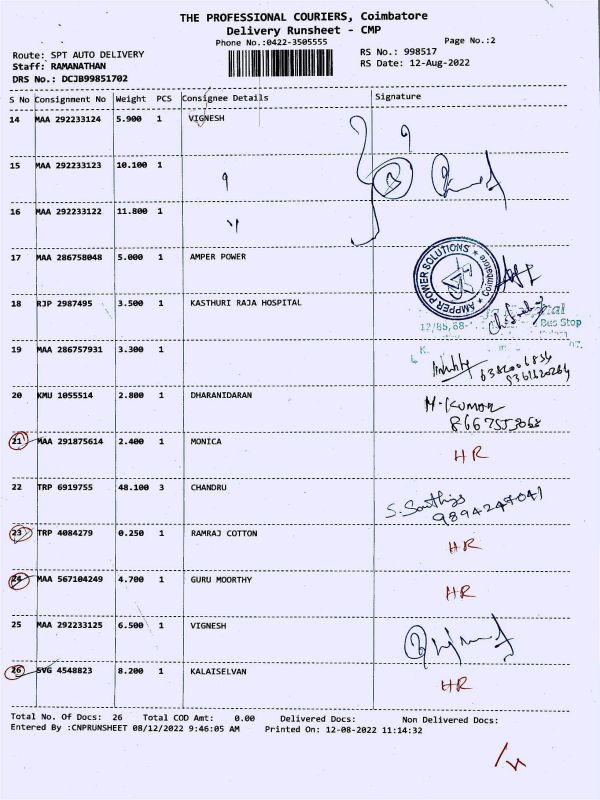 THE PROFESSIONAL COURIERS, Coimbatore
Delivery Runsheet - CMP
Phone No.:0422-3505555 Page No.:2
Route: SPT AUTO DELIVERY RS No.: 998517
Staff: RAMANATHAN RS Date: 12-Aug-2022
DRS No.: DCJB99851702
S No Consignment No Weight PCS Consignee Details Signature
14 MAA 292233124 5.900 1 VIGNESH
15 MAA 292233123 10.100 1
16 MAA 292233122 11.800 1
17 MAA 286758048 5.000 1 AMPER POWER
AMPPER POWER SOLUTIONS ★ Coimbatore ★
18 RJP 2987495 3.500 1 KASTHURI RAJA HOSPITAL
12/85,88- Bus Stop
19 MAA 286757931 3.300 1
20 KMU 1055514 2.800 1 DHARANIDARAN M. KUMAR
21 MAA 291875614 2.400 1 MONICA HR
22 TRP 6919755 48.100 3 CHANDRU
9894247041
23 TRP 4084279 0.250 1 RAMRAJ COTTON HR
24 MAA 567104249 4.700 1 GURU MOORTHY HR
25 MAA 292233125 6.500 1 VIGNESH
26 SVG 4548823 8.200 1 KALAISELVAN HR
Total No. Of Docs: 26 Total COD Amt: 0.00 Delivered Docs: Non Delivered Docs:
Entered By :CNPRUNSHEET 08/12/2022 9:46:05 AM Printed On: 12-08-2022 11:14:32